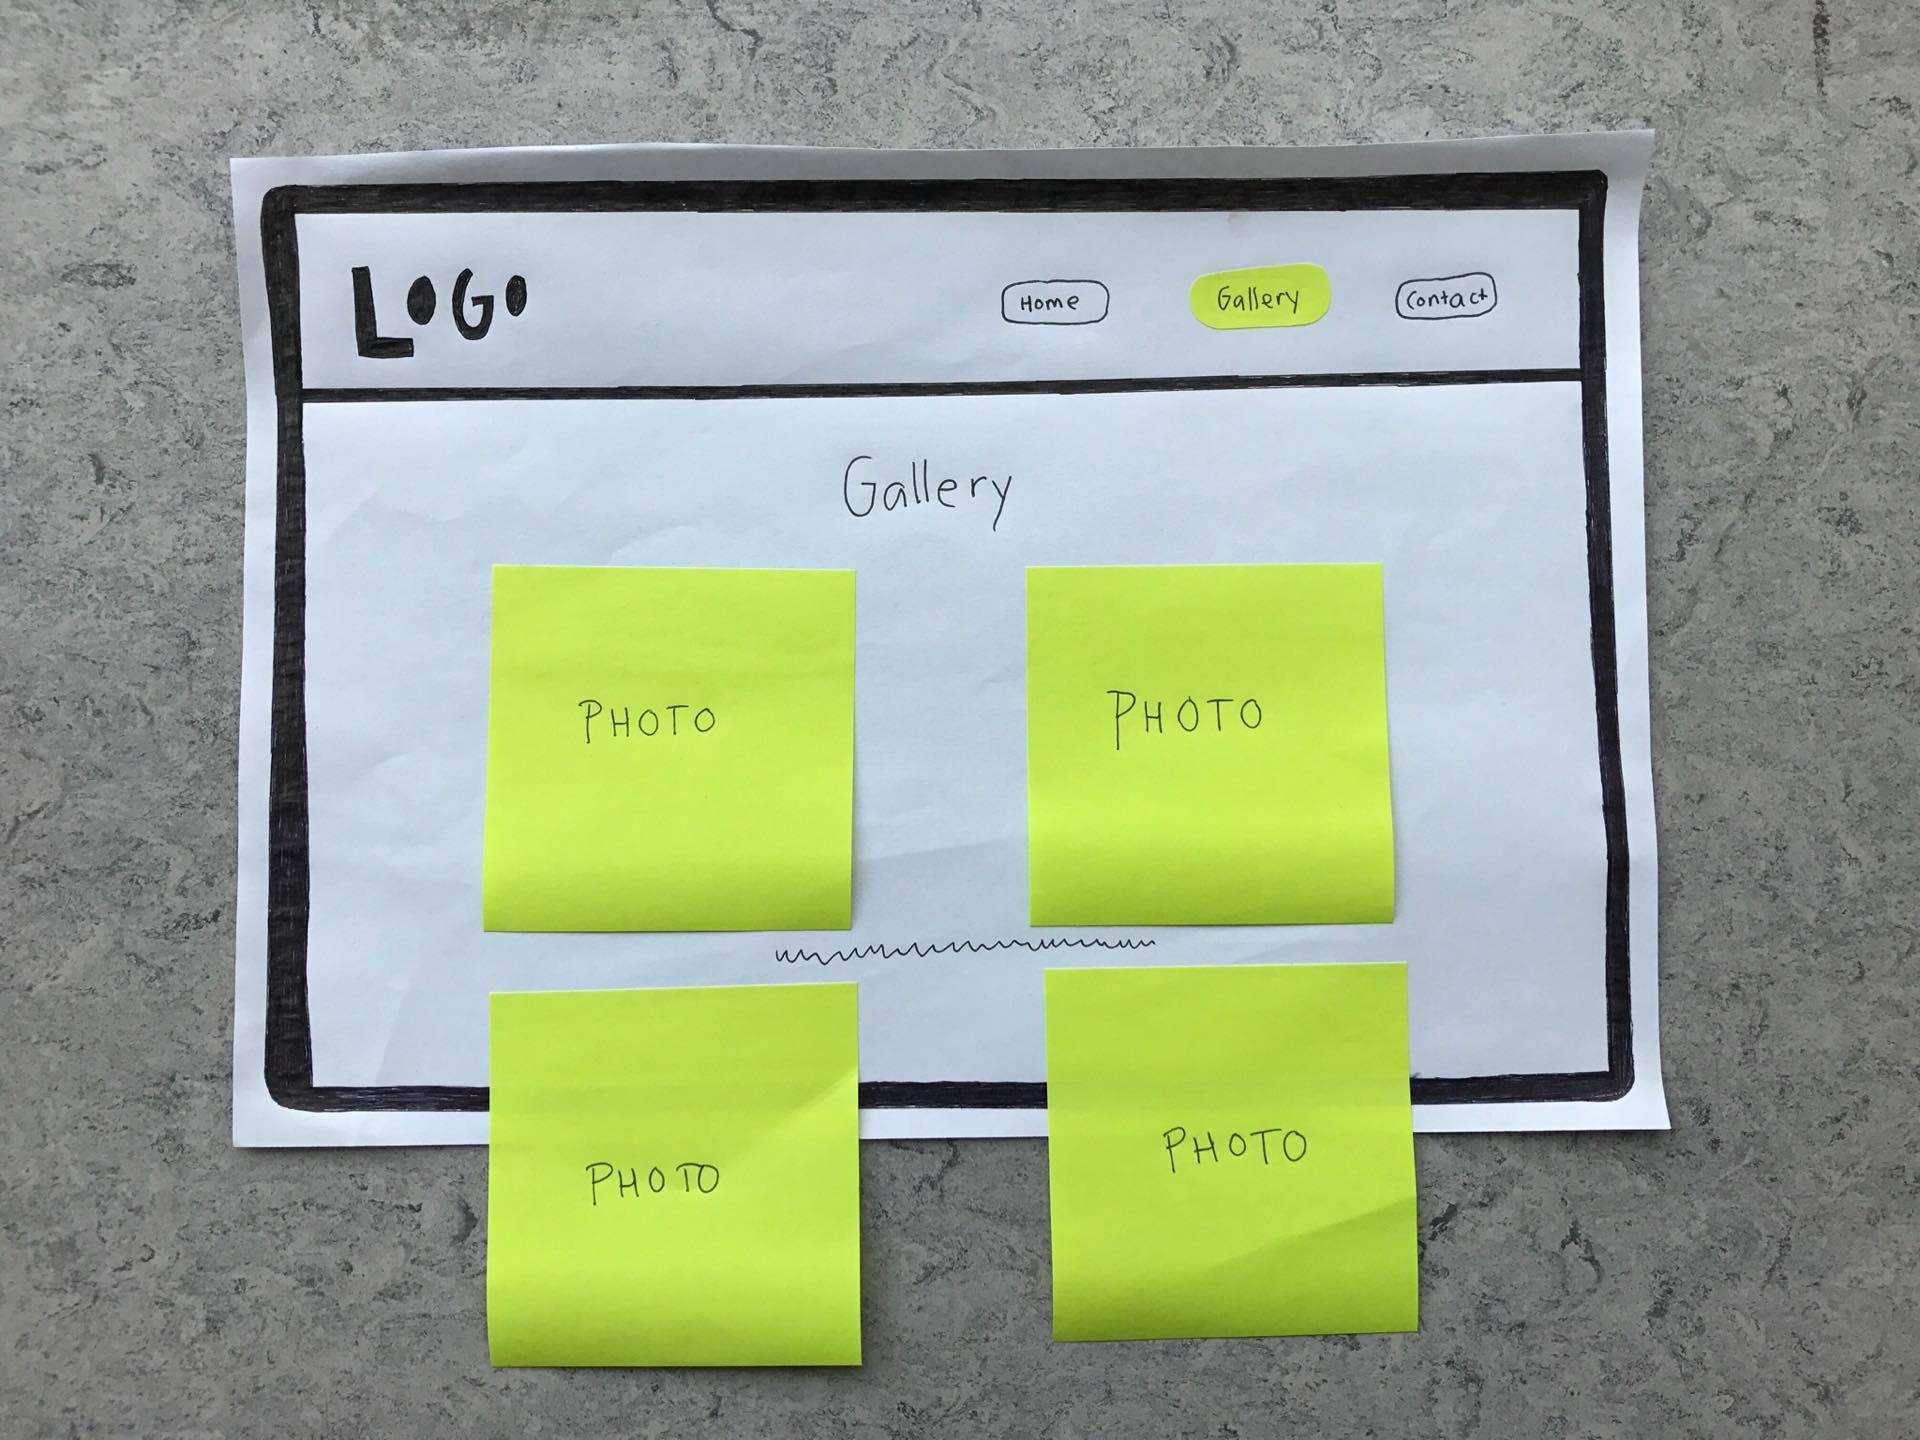 LOGO
Home Gallery Contact
Gallery
PHOTO PHOTO
PHOTO PHOTO